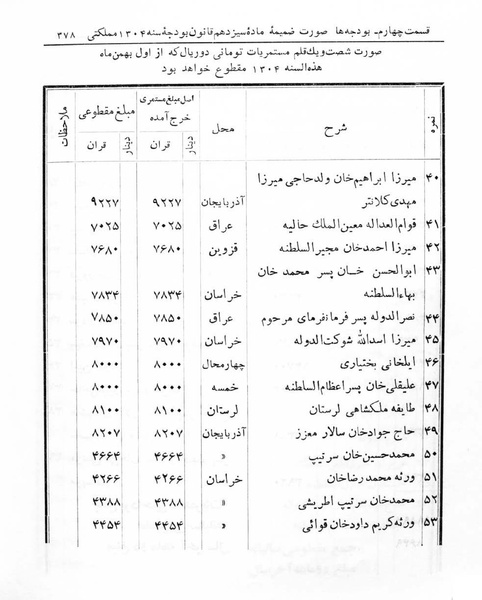 قسمت چهارم- بودجه‌ها صورت ضمیمهٔ مادهٔ سیزدهم قانون بودجهٔ سنه ۱۳۰۴ مملکتی ۳۷۸
صورت شصت و یك قلم مستمریات تومانی دوریال که از اول بهمن ماه
هذه السنه ۱۳۰۴ مقطوع خواهد بود
نمره شرح محل اصل مبلغ مستمری خرج آمده مبلغ مقطوعی ملاحظات
دینار قران دینار قران
۴۰ میرزا ابراهیم خان ولد حاجی میرزا
مهدی کلانتر آذربایجان ۹۲۲۷ ۹۲۲۷
۴۱ قوام العداله معین الملك حالیه عراق ۷۰۲۵ ۷۰۲۵
۴۲ میرزا احمد خان مجیر السلطنه قزوین ۷۶۸۰ ۷۶۸۰
۴۳ ابوالحسن خان پسر محمد خان
بهاء السلطنه خراسان ۷۸۳۴ ۷۸۳۴
۴۴ نصر الدوله پسر فرمانفرمای مرحوم عراق ۷۸۵۰ ۷۸۵۰
۴۵ میرزا اسدالله شوکت الدوله خراسان ۷۹۷۰ ۷۹۷۰
۴۶ ایلخانی بختیاری چهارمحال ۸۰۰۰ ۸۰۰۰
۴۷ علیقلی خان پسر اعظام السلطنه خمسه ۸۰۰۰ ۸۰۰۰
۴۸ طایفه ملکشاهی لرستان لرستان ۸۱۰۰ ۸۱۰۰
۴۹ حاج جواد خان سالار معزز آذربایجان ۸۲۰۷ ۸۲۰۷
۵۰ محمد حسین خان سرتیپ » ۴۶۶۴ ۴۶۶۴
۵۱ ورثه محمد رضا خان خراسان ۴۲۶۶ ۴۲۶۶
۵۲ محمد خان سرتیپ اطریشی » ۴۳۸۸ ۴۳۸۸
۵۳ ورثه کریم داود خان قوائی » ۴۴۵۴ ۴۴۵۴